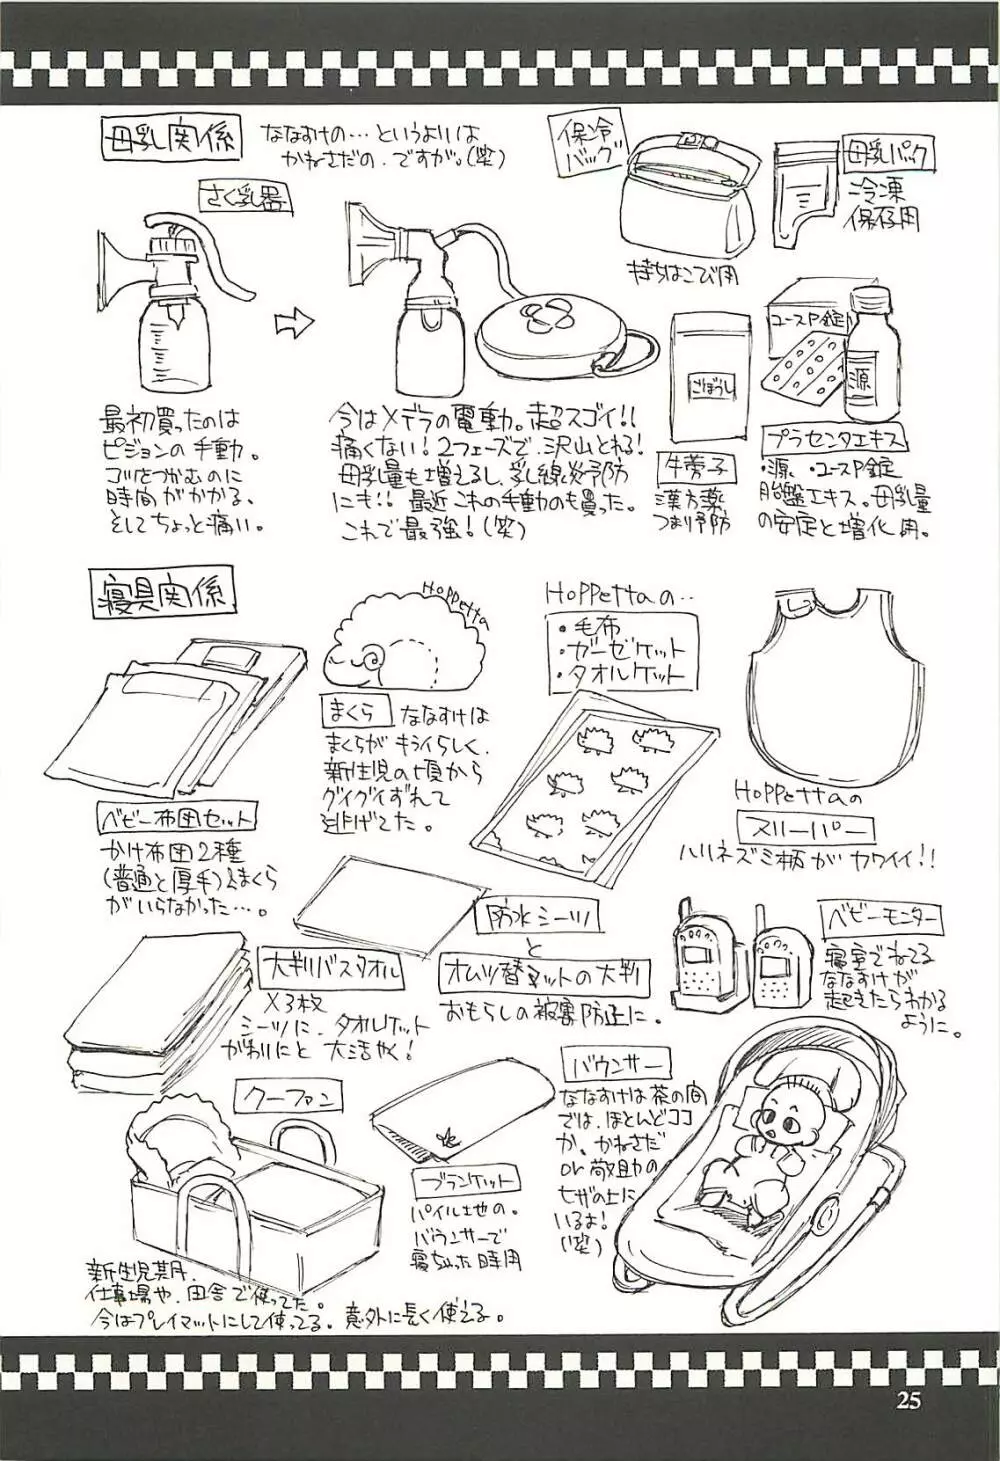 母乳関係
ななすけの…というよりは
かねさだの、ですが。(笑)
さく乳器
最初買ったのは
ピジョンの手動。
コツをつかむのに
時間がかかる、
そしてちょっと痛い。
今はメデラの電動。超スゴイ!!
痛くない!2フェーズで、沢山とれる!
母乳量も増えるし、乳線炎予防
にも!!最近これの手動のも買った。
これで最強!(笑)
保冷
バッグ
持ちはこび用
母乳パック
冷凍
保存用
ごぼうし
牛蒡子
漢方薬
つまり予防
ユースP錠
源
プラセンタエキス
・源 ・ユースP錠
胎盤エキス。母乳量
の安定と増化用。
寝具関係
ベビー布団セット
かけ布団2種
(普通と厚手)とまくら
がいらなかった…。
Hoppetta
まくら
ななすけは
まくらがキライらしく、
新生児の頃から
グイグイずれて
逃げてた。
Hoppettaの‥
・毛布
・ガーゼケット
・タオルケット
Hoppettaの
スリーパー
ハリネズミ柄がカワイイ!!
大判バスタオル
×3枚
シーツに、タオルケット
がわりにと大活やく!
防水シーツ
と
オムツ替マットの大判
おもらしの被害防止に。
ベビーモニター
寝室でねてる
ななすけが
起きたらわかる
ように。
クーファン
新生児期、
仕事場や、田舎で使ってた。
今はプレイマットにして使ってる。意外に長く使える。
ブランケット
パイル地の。
バウンサーで
寝ちゃった時用
バウンサー
ななすけは茶の間
では、ほとんどココ
か、かねさだ
or 敬助の
ヒザの上に
いるよ!
(笑)
25